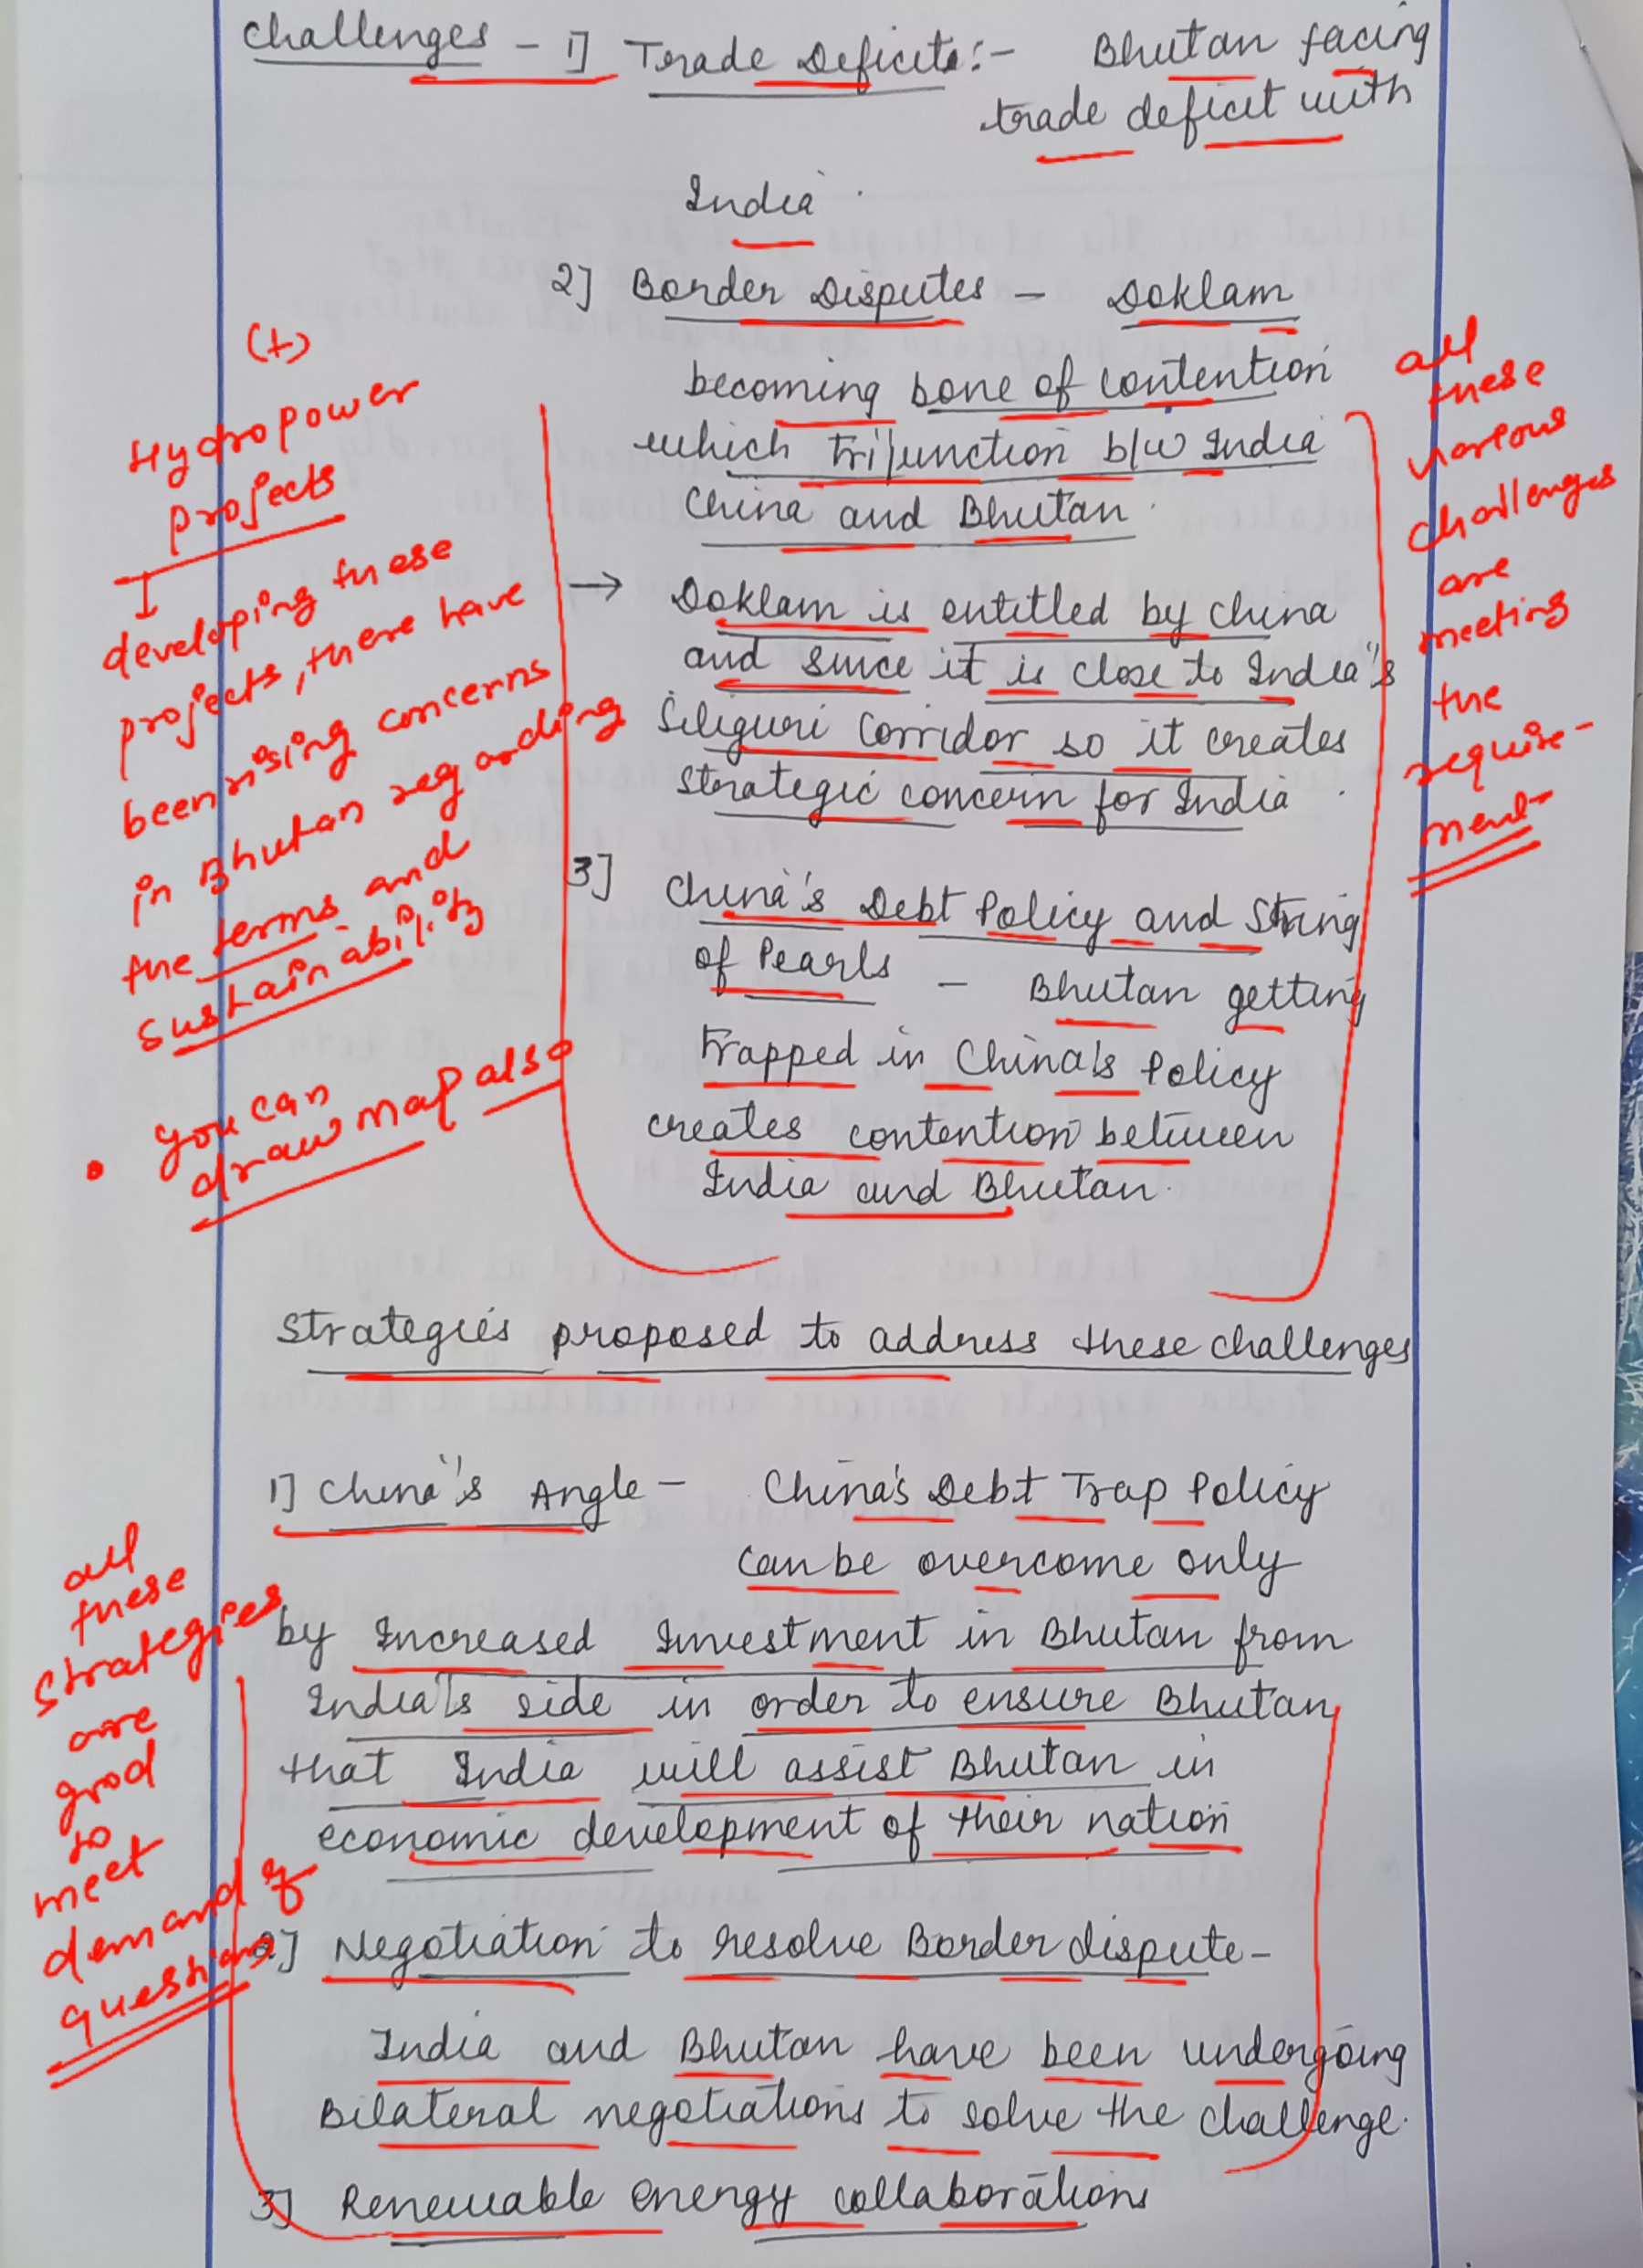 Challenges - 1] Trade Deficits:- Bhutan facing
trade deficit with
India.
2] Border Disputes - Doklam
becoming bone of contention
which trijunction b/w India
China and Bhutan.
→ Doklam is entitled by China
and since it is close to India's
Siliguri Corridor so it creates
strategic concern for India.
3] China's Debt Policy and String
of Pearls - Bhutan getting
trapped in China's Policy
creates contention between
India and Bhutan.
(+)
Hydropower
projects
developing these
projects, there have
been rising concerns
in Bhutan regarding
the terms and
sustainability
• you can
draw map also
all
these
various
challenges
are
meeting
the
require-
ment
Strategies proposed to address these challenges
1] China's Angle - China's Debt Trap Policy
can be overcome only
by Increased Investment in Bhutan from
India's side in order to ensure Bhutan
that India will assist Bhutan in
economic development of their nation
2] Negotiation to resolve Border dispute-
India and Bhutan have been undergoing
Bilateral negotiations to solve the challenge.
3] Renewable energy collaborations
all
these
strategies
are
good
to
meet
demand of
questions